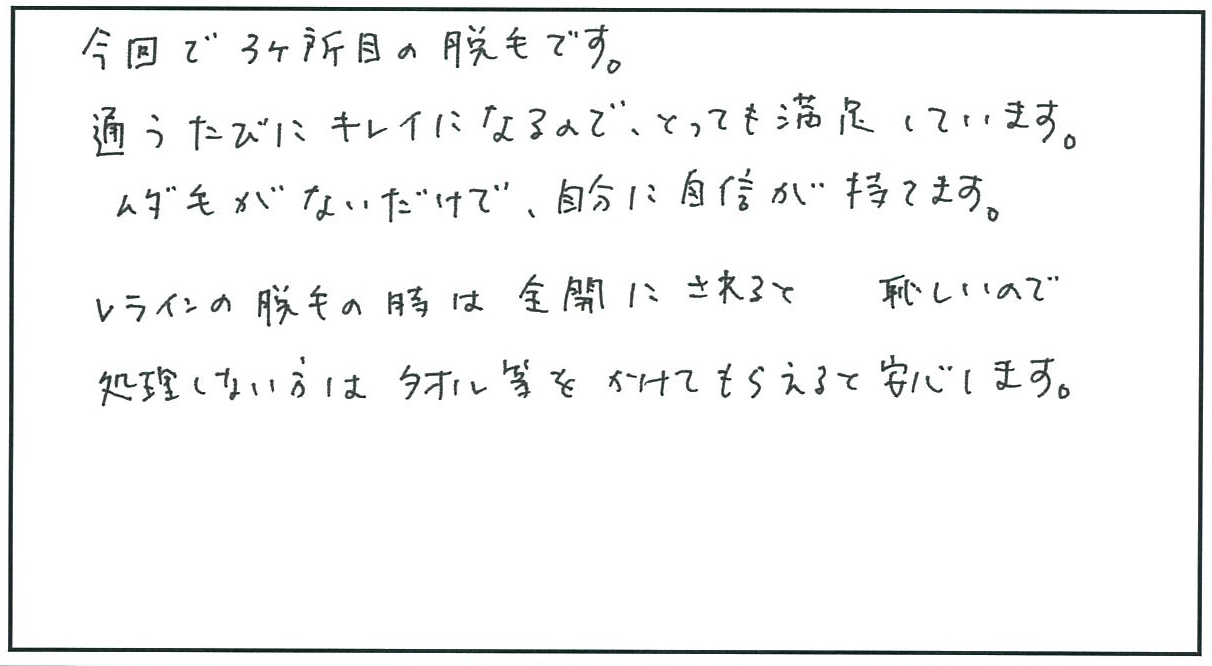 今回で3ケ所目の脱毛です。
通うたびにキレイになるので、とっても満足しています。
ムダ毛がないだけで、自分に自信が持てます。
Vラインの脱毛の時は全開にされると 恥しいので
処理しない方はタオル等をかけてもらえると安心します。